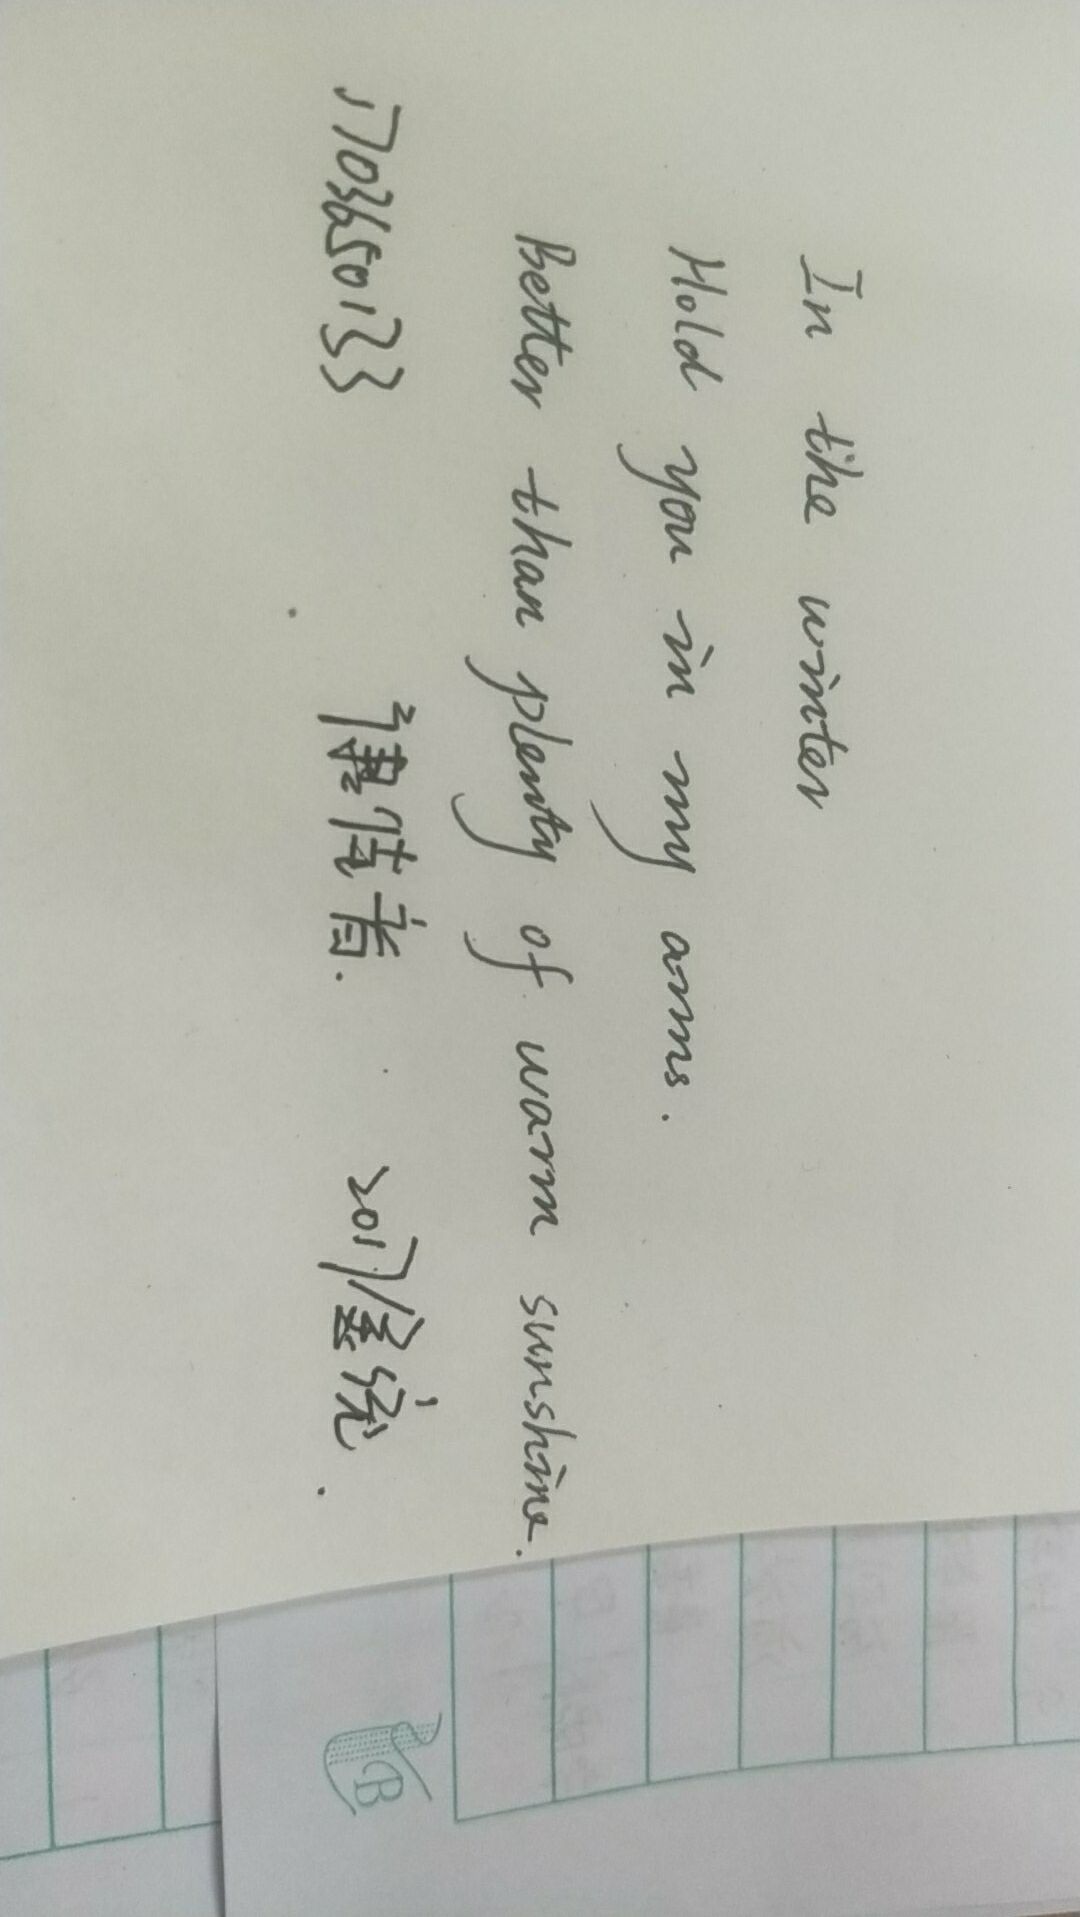 In the winter
Hold you in my arms.
Better than plenty of warm sunshine.
1703650133 2017金统.
B